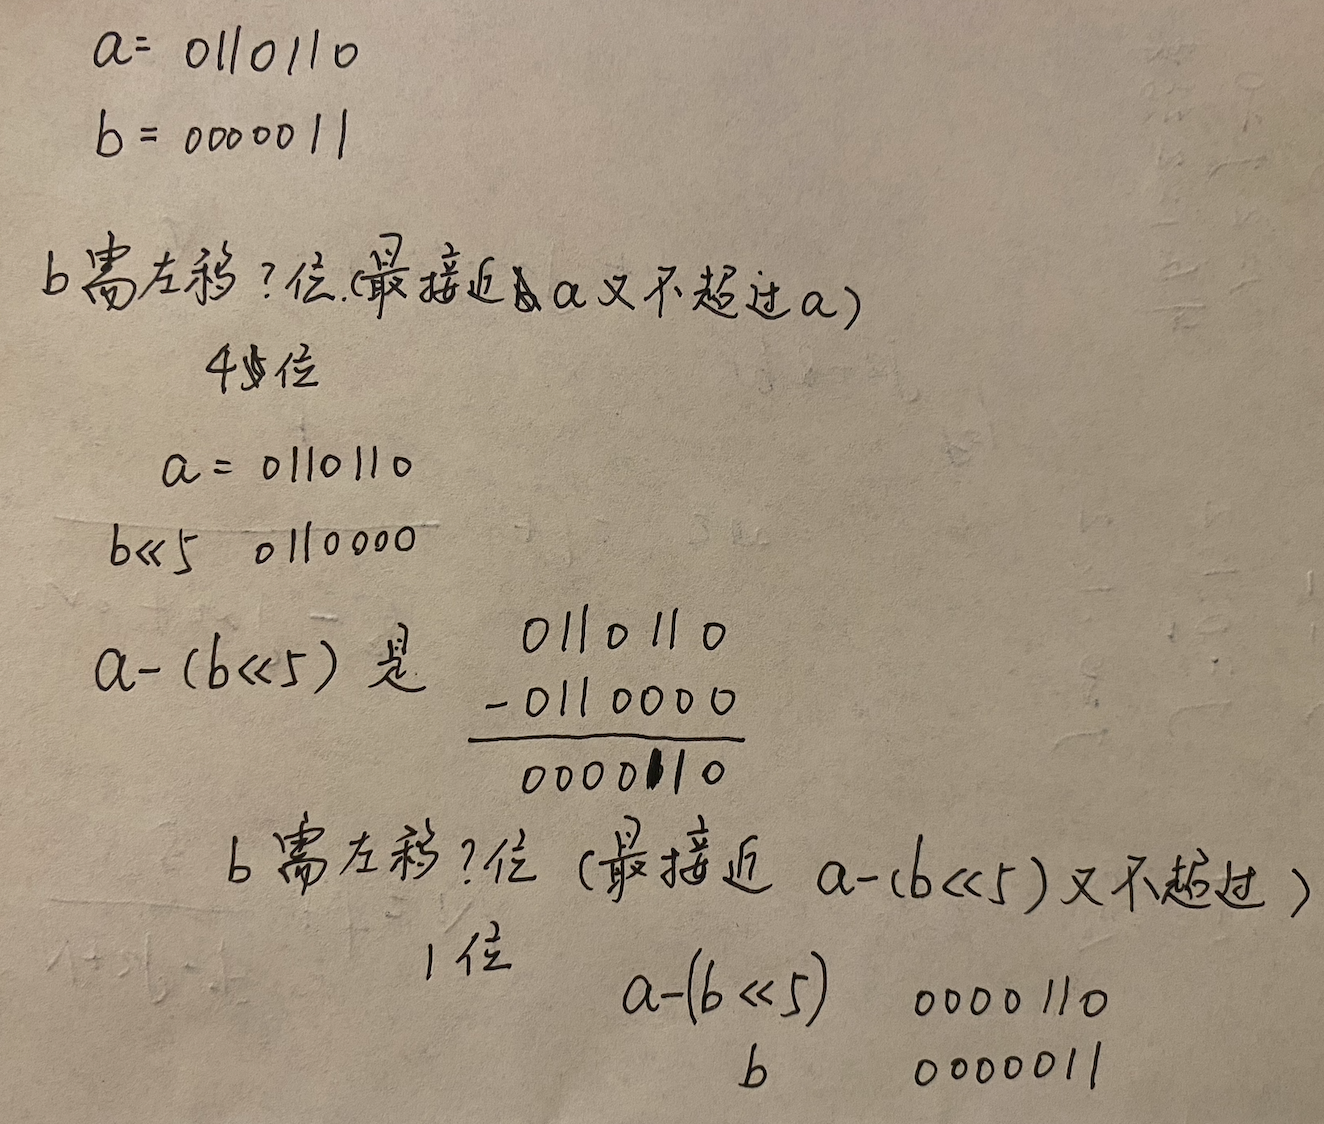 a= 0110110
b = 0000011
b需左移?位.(最接近a又不超过a)
4位
a = 0110110
b<<5 0110000
0110110
a-(b<<5) 是 -0110000
0000110
b需左移?位 (最接近 a-(b<<5)又不超过)
1位
a-(b<<5) 0000110
b 0000011